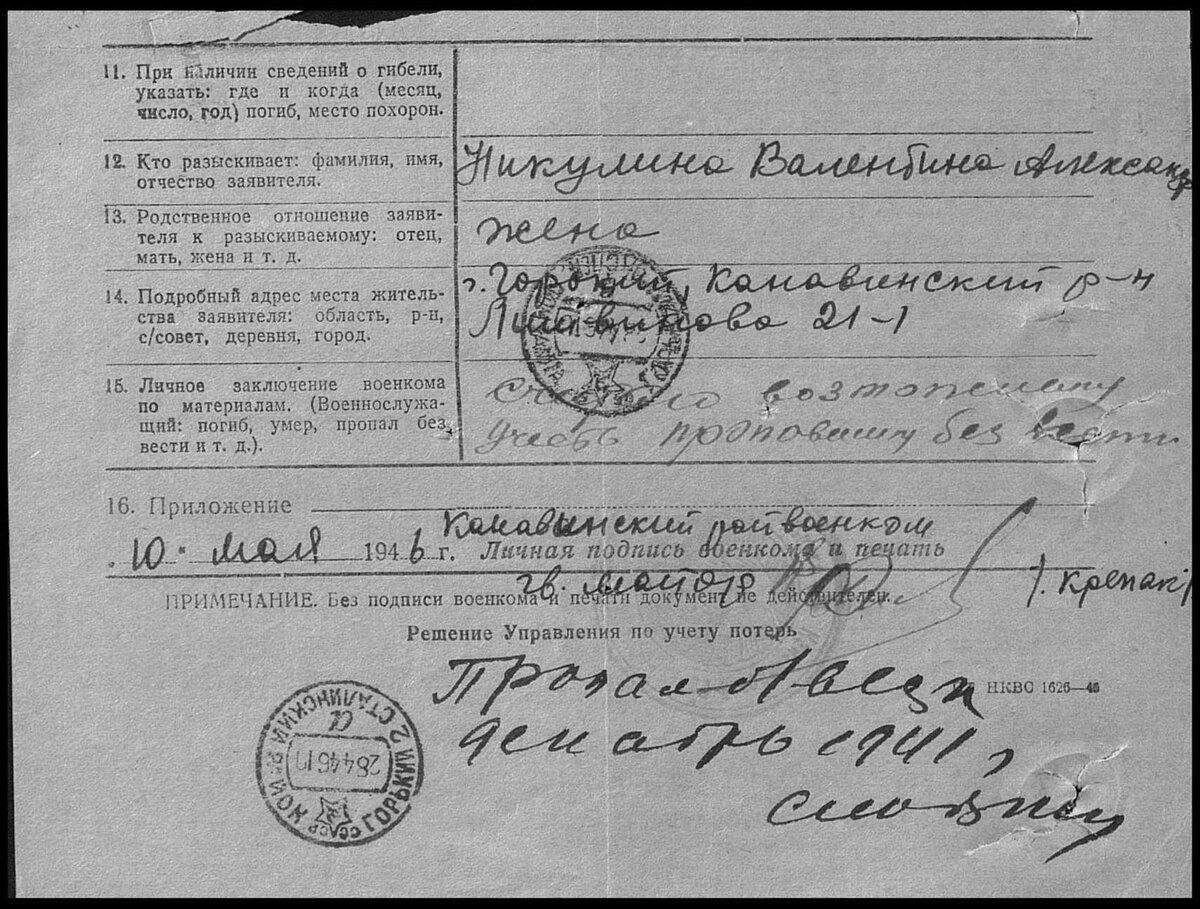 11. При наличии сведений о гибели,
указать: где и когда (месяц,
число, год) погиб, место похорон.
12. Кто разыскивает: фамилия, имя,
отчество заявителя.
Никулина Валентина Александр
13. Родственное отношение заяви-
теля к разыскиваемому: отец,
мать, жена и т. д.
жена
14. Подробный адрес места житель-
ства заявителя: область, р-н,
с/совет, деревня, город.
г. Горький, Канавинский р-н
21-1
15. Личное заключение военкома
по материалам. (Военнослужа-
щий: погиб, умер, пропал без
вести и т. д.).
считаю возможным
учесть пропавшим без вести
16. Приложение
Канавинский райвоенком
10 мая 1946 г. Личная подпись военкома и печать
гв. майор /. Крепак/
ПРИМЕЧАНИЕ. Без подписи военкома и печати документ не действителен.
Решение Управления по учету потерь
Пропал б/вести
НКВО 1626—46
декабрь 1941,
ГОРЬКИЙ 2 СТАЛИНСКИЙ РАЙОН
28446
СССР